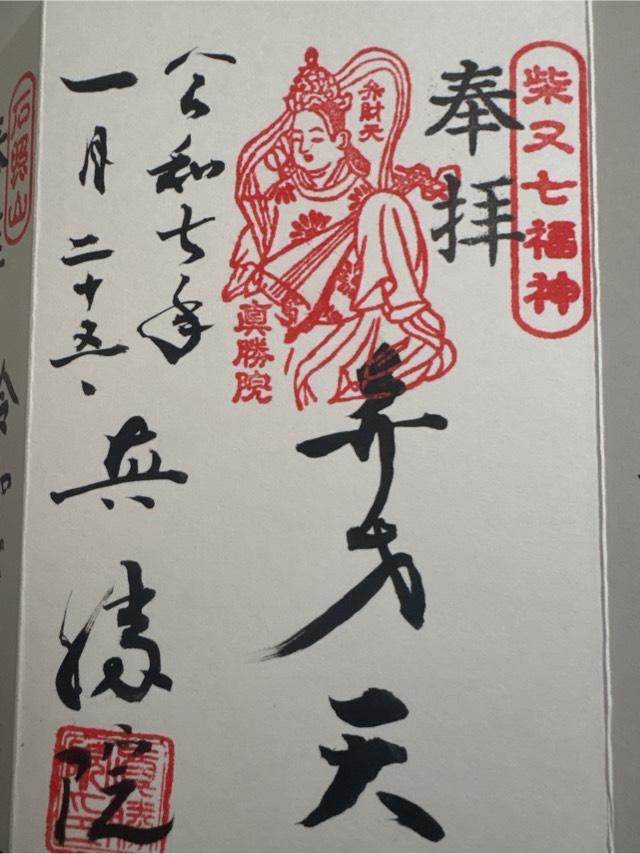 柴又七福神
奉拝
弁財天
弁才天
眞勝院
令和七年
一月二十五日
真勝院
石照山